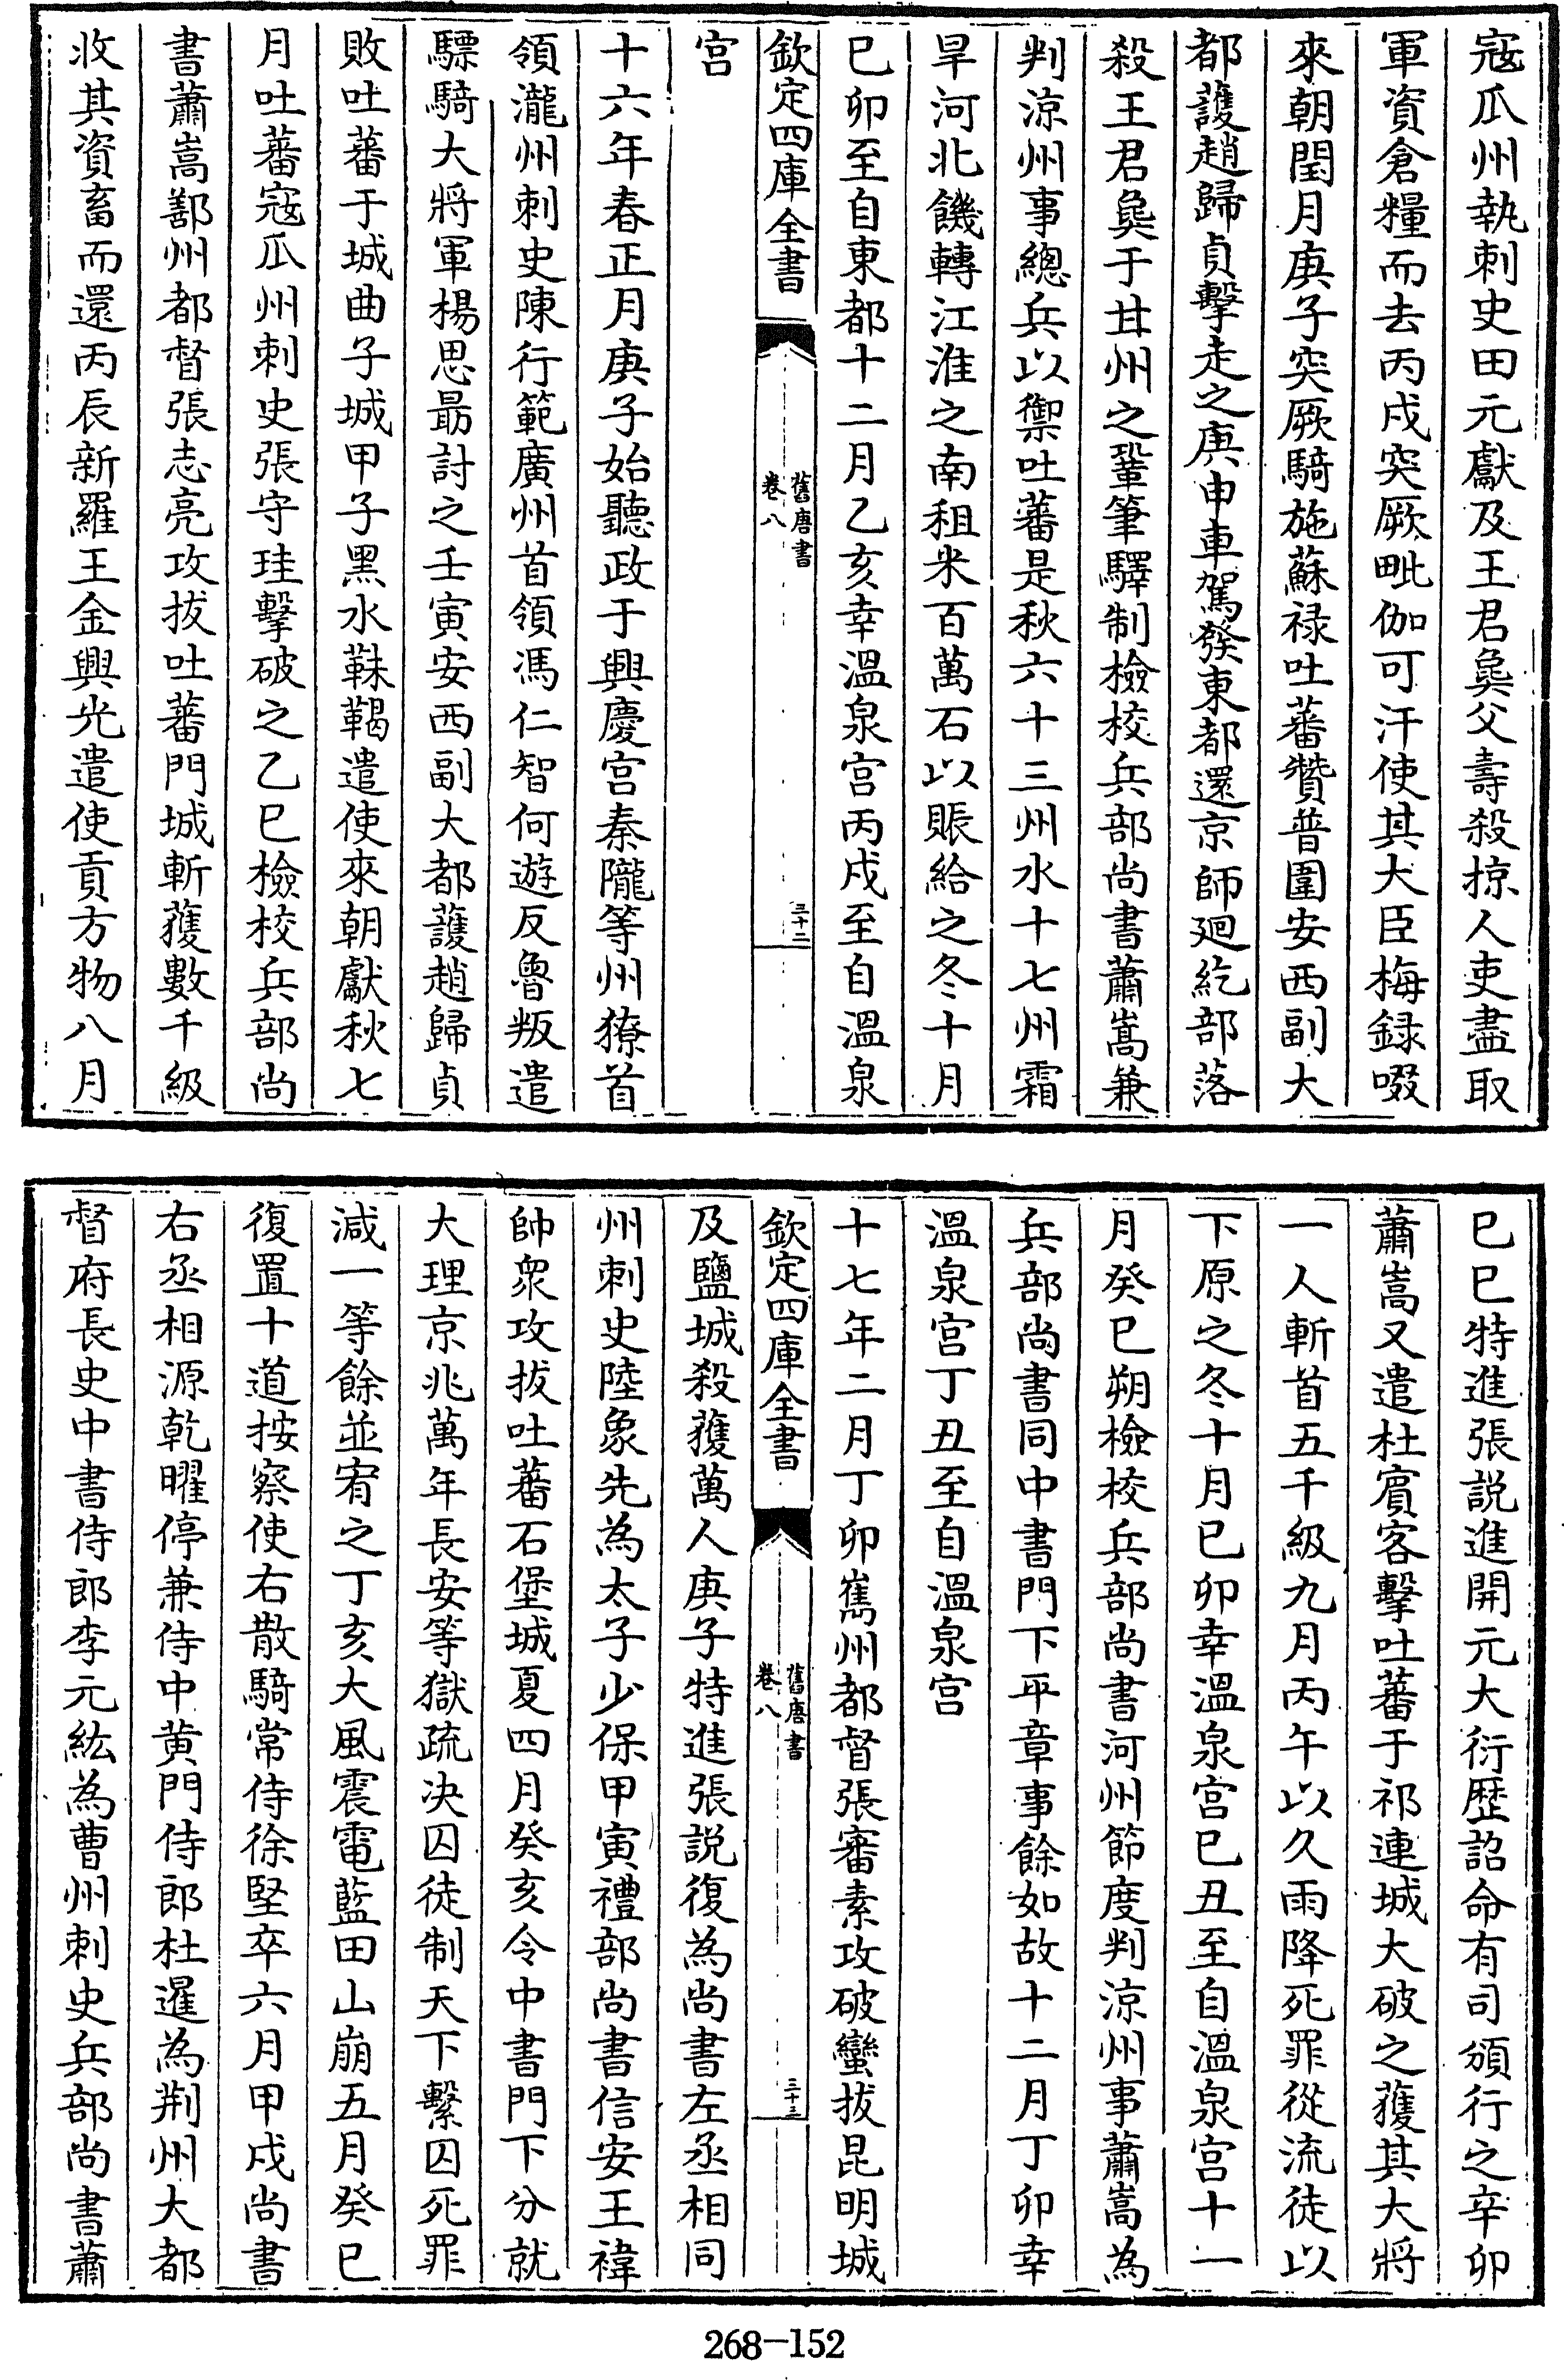 寇瓜州執刺史田元獻及王君㚟父壽殺掠人吏盡取
軍資倉糧而去丙戌突厥毗伽可汗使其大臣梅録啜
來朝閏月庚子突厥騎施蘇禄吐蕃贊普圍安西副大
都護趙歸貞擊走之庚申車駕發東都還京師廻紇部落
殺王君㚟于甘州之鞏筆驛制檢校兵部尚書蕭嵩兼
判涼州事總兵以禦吐蕃是秋六十三州水十七州霜
旱河北饑轉江淮之南租米百萬石以賑給之冬十月
已卯至自東都十二月乙亥幸溫泉宮丙戌至自溫泉
欽定四庫全書
舊唐書
卷八
三十二
宮
十六年春正月庚子始聽政于興慶宮秦隴等州獠首
領瀧州刺史陳行範廣州首領馮仁智何遊反魯叛遣
驃騎大將軍楊思勗討之壬寅安西副大都護趙歸貞
敗吐蕃于城曲子城甲子黑水靺鞨遣使來朝獻秋七
月吐蕃寇瓜州刺史張守珪擊破之乙巳檢校兵部尚
書蕭嵩鄯州都督張志亮攻拔吐蕃門城斬獲數千級
收其資畜而還丙辰新羅王金興光遣使貢方物八月
已巳特進張説進開元大衍歴詔命有司頒行之辛卯
蕭嵩又遣杜賓客擊吐蕃于祁連城大破之獲其大將
一人斬首五千級九月丙午以久雨降死罪從流徒以
下原之冬十月已卯幸溫泉宮已丑至自溫泉宮十一
月癸巳朔檢校兵部尚書河州節度判涼州事蕭嵩為
兵部尚書同中書門下平章事餘如故十二月丁卯幸
溫泉宮丁丑至自溫泉宮
十七年二月丁卯嶲州都督張審素攻破蠻拔昆明城
欽定四庫全書
舊唐書
卷八
三十三
及鹽城殺獲萬人庚子特進張説復為尚書左丞相同
州刺史陸象先為太子少保甲寅禮部尚書信安王禕
帥衆攻拔吐蕃石堡城夏四月癸亥令中書門下分就
大理京兆萬年長安等獄疏决囚徒制天下繫囚死罪
減一等餘並宥之丁亥大風震電藍田山崩五月癸巳
復置十道按察使右散騎常侍徐堅卒六月甲戌尚書
右丞相源乾曜停兼侍中黄門侍郎杜暹為荆州大都
督府長史中書侍郎李元紘為曹州刺史兵部尚書蕭
268-152